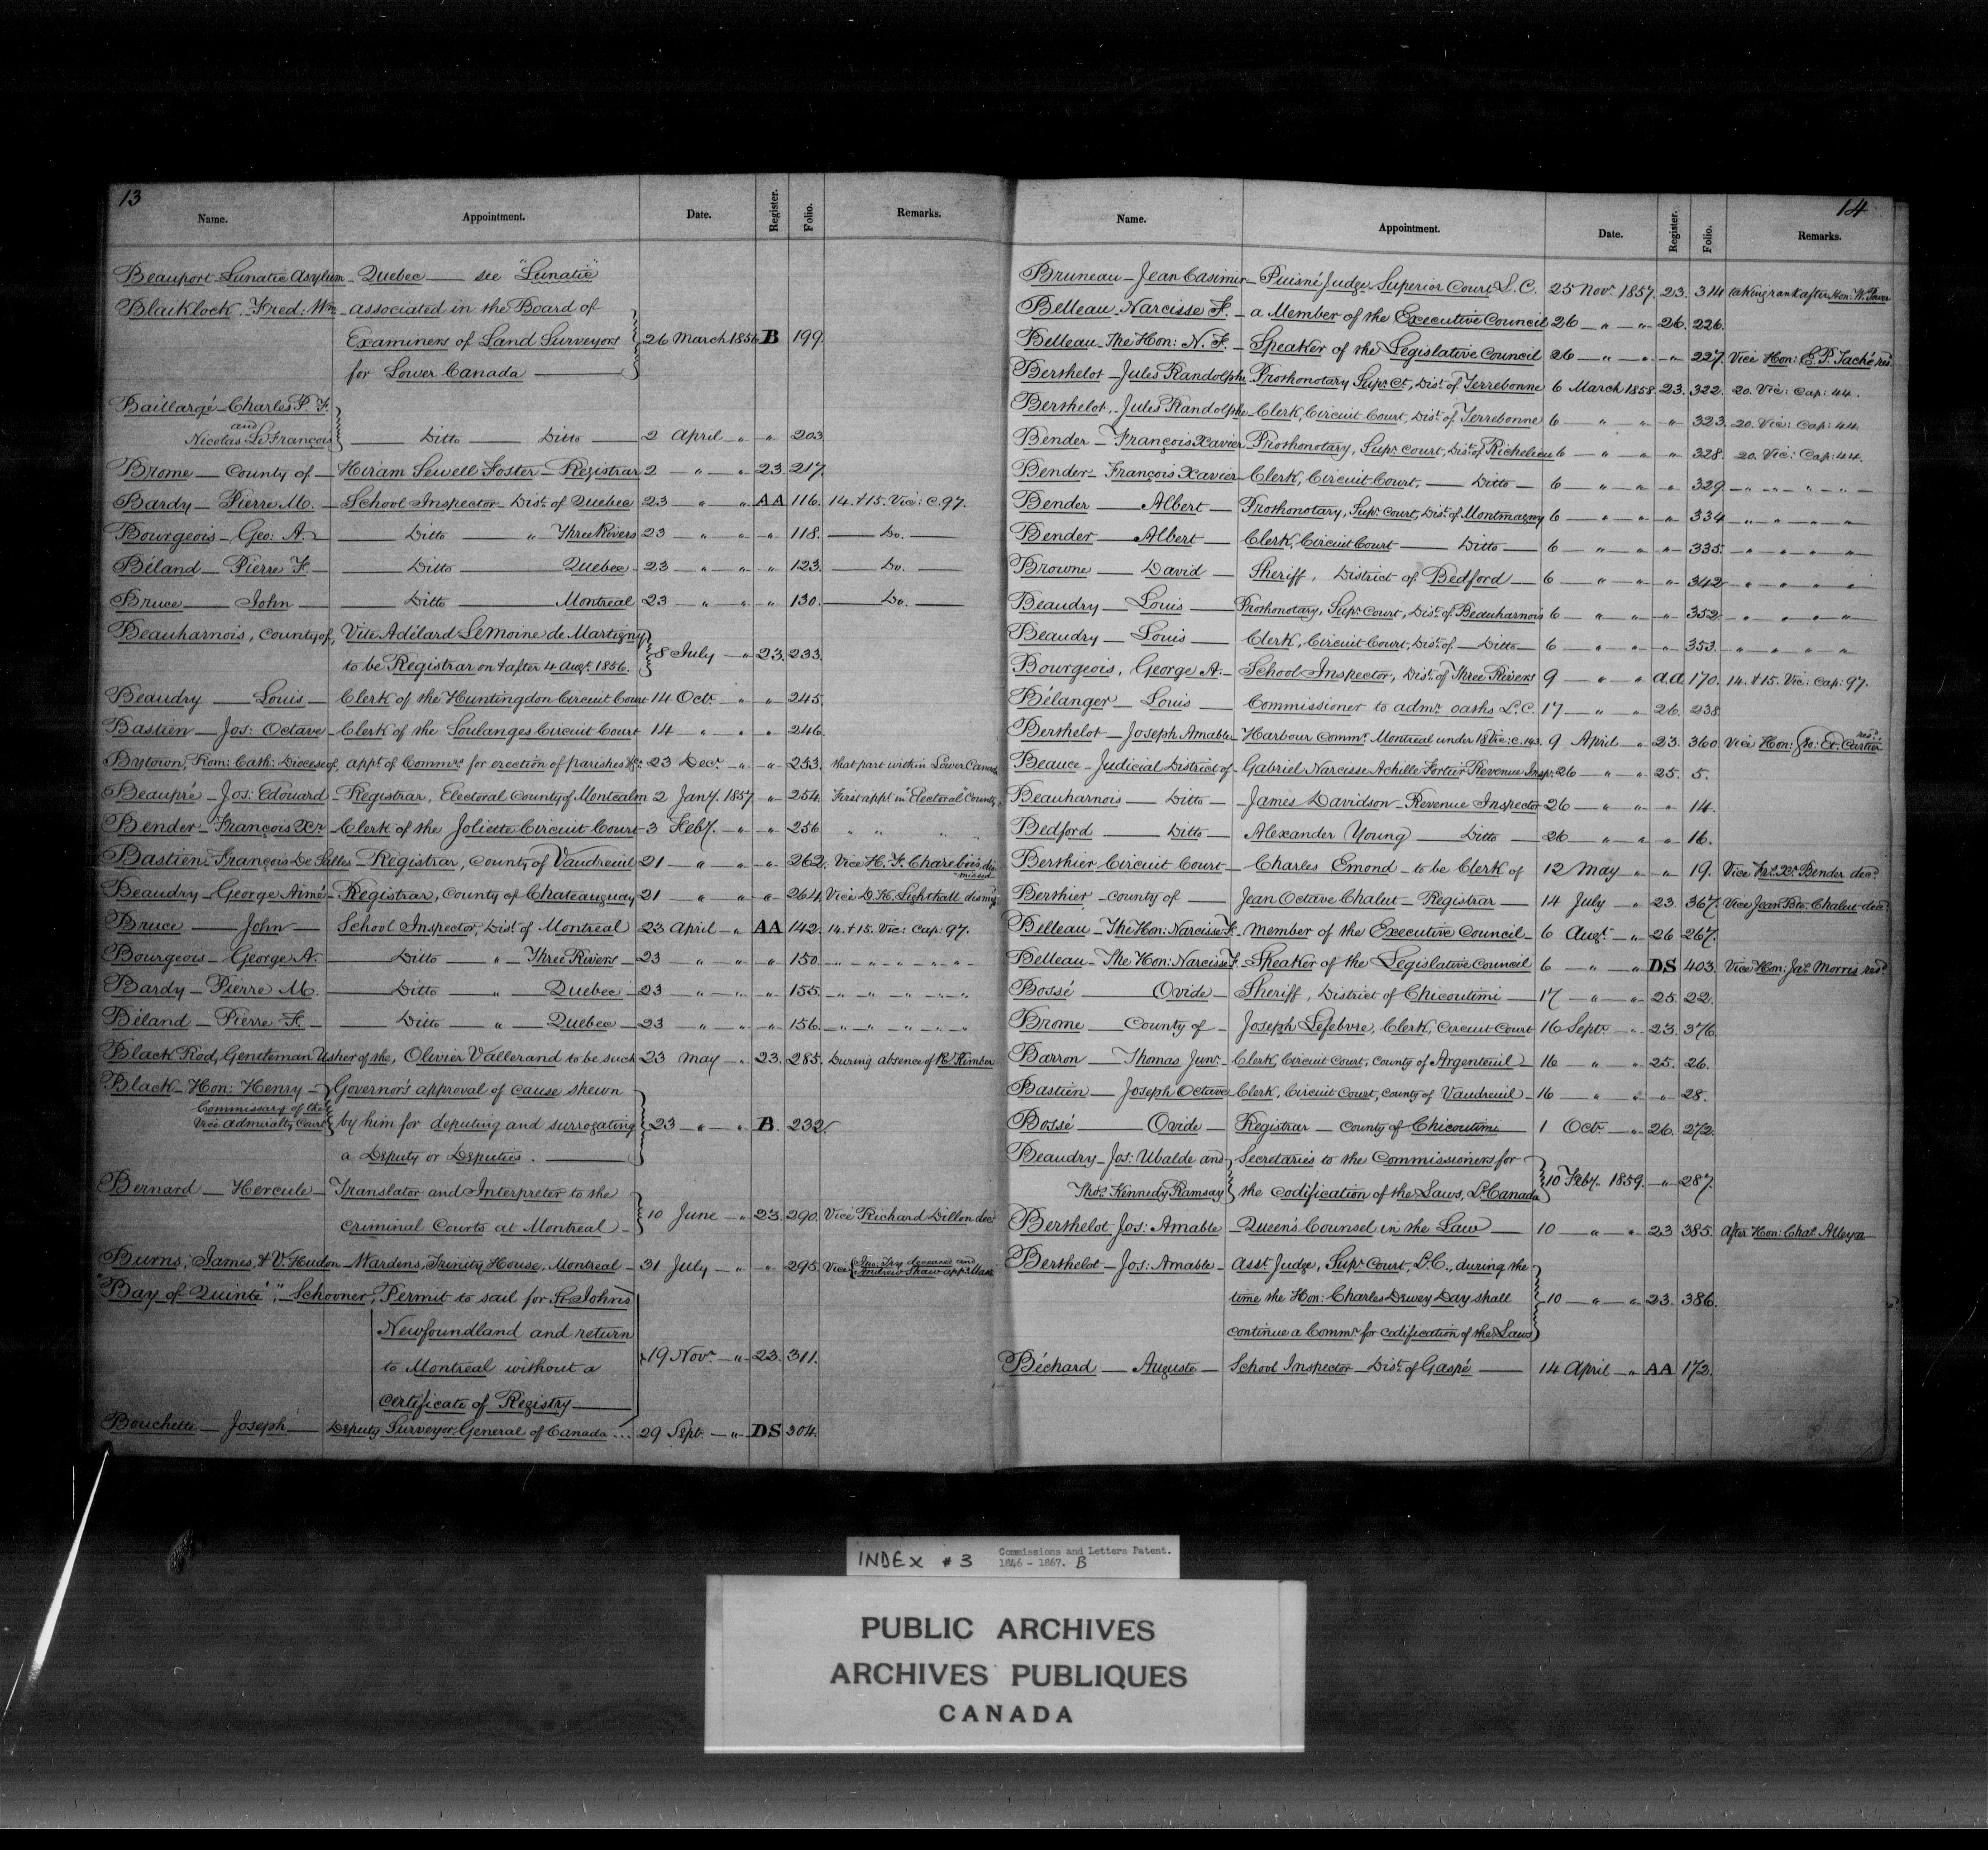 13
Name. Appointment. Date. Register. Folio. Remarks.
Beauport Lunatic Asylum - Quebec — see "Lunatic"
Blaiklock - Fred: Wm - associated in the Board of
Examiners of Land Surveyors 26 March 1856 B 199.
for Lower Canada —
Baillargé - Charles P. F.
and
Nicolas LeFrançois — Ditto — Ditto — 2 April — " — " 203.
Brome — County of — Hiram Sewell Foster - Registrar 2 — " — " 23. 217.
Bardy — Pierre M. — School Inspector - Dist. of Quebec 23 — " — " AA 116. 14. + 15. Vic: c. 97.
Bourgeois — Geo: A. — Ditto — " Three Rivers 23 — " — " " 118. — Do. —
Béland — Pierre F. — Ditto — Quebec - 23 — " — " " 123. — Do. —
Bruce — John — Ditto — Montreal 23 — " — " " 130. — Do. —
Beauharnois, County of, Vite Adélard LeMoine de Martigny
to be Registrar on + after 4 Augt. 1856. 8 July — " 23. 233.
Beaudry — Louis — Clerk of the Huntingdon Circuit Court 14 Octr. — " " 245.
Bastien — Jos: Octave - Clerk of the Soulanges Circuit Court 14 — " — " " 246.
Bytown, Rom: Cath: Diocese of, appt. of Commrs. for erection of parishes &c. 23 Decr. — " " 253. that part within Lower Canada
Beaupré — Jos: Edouard - Registrar, Electoral County of Montcalm 2 Jany. 1857 " 254. First appt. in "Electoral" County
Bender - François Xr. - Clerk of the Joliette Circuit Court - 3 Feby. — " " 256. " " " "
Bastien François De Salles - Registrar, County of Vaudreuil 21 — " — " " 262. Vice H. F. Charebois, dis-
missed
Beaudry - George Aimé - Registrar, County of Chateauguay 21 " " " 264. Vice D. K. Lighthall dismd.
Bruce — John — School Inspector, Dist. of Montreal 23 April — " AA 142. 14. + 15. Vic: Cap: 97.
Bourgeois — George A. — Ditto — " — Three Rivers - 23 — " — " " 150. — " — " — " — " — "
Bardy — Pierre M. — Ditto — " — Quebec - 23 — " — " " 155. — " — " — " — " — "
Béland — Pierre F. — Ditto — " — Quebec - 23 — " — " " 156. — " — " — " — " — "
Black Rod, Gentleman Usher of the, Olivier Vallerand to be such 23 May — " 23. 285. During absence of R. Kimber
Black - Hon: Henry - Governor's approval of cause shewn
Commissary of the
Vice Admiralty Court by him for deputing and surrogating 23 — " — " B. 232.
a Deputy or Deputies. —
Bernard — Hercule - Translator and Interpreter to the
criminal Courts at Montreal - 10 June — " 23. 290. Vice Richard Dillon decd.
Burns, James, + V. Hudon - Wardens, Trinity House, Montreal - 31 July — " — " 295. Vice Jno: Try deceased and
Andrew Shaw appd. Mast.
"Bay of Quinté", Schooner, Permit to sail for St. Johns
Newfoundland and return
to Montreal without a 19 Novr. — " 23. 311.
certificate of Registry —
Bouchette — Joseph — Deputy Surveyor General of Canada ... 29 Sept. — " DS 304.
14
Name. Appointment. Date. Register. Folio. Remarks.
Bruneau - Jean Casimir - Puisné Judge Superior Court L. C. 25 Novr. 1857. 23. 314 taking rank after Hon: W. Power
Belleau - Narcisse F. - a Member of the Executive Council 26 — " — " 26. 226.
Belleau - The Hon: N. F. - Speaker of the Legislative Council 26 — " — " " 227. Vice Hon: E. P. Taché resd.
Berthelot - Jules Randolphe Prothonotary Supr. Ct., Dist. of Terrebonne 6 March 1858. 23. 322. 20. Vic: Cap: 44.
Berthelot, - Jules Randolphe - Clerk, Circuit Court, Dist. of Terrebonne 6 — " — " " 323. 20. Vic: Cap: 44.
Bender — François Xavier - Prothonotary, Supr. Court, Dist. of Richelieu 6 — " — " " 328. 20. Vic: Cap: 44.
Bender - François Xavier - Clerk, Circuit Court, — Ditto — 6 — " — " " 329 — " — " — " — " —
Bender — Albert — Prothonotary, Supr. Court, Dist. of Montmagny 6 — " — " " 334 — " — " — " — " —
Bender — Albert — Clerk, Circuit Court — Ditto — 6 — " — " " 335. — " — " — " — " —
Browne — David — Sheriff, District of Bedford — 6 — " — " " 342 — " — " — " — " —
Beaudry — Louis — Prothonotary, Supr. Court, Dist. of Beauharnois 6 — " — " " 352. — " — " — " — " —
Beaudry — Louis — Clerk, Circuit Court, Dist. of — Ditto — 6 — " — " " 353. — " — " — " — " —
Bourgeois, George A. - School Inspector, Dist. of Three Rivers 9 — " — " a.a. 170. 14. + 15. Vic: Cap: 97.
Bélanger — Louis — Commissioner to admr. oaths L. C. 17 — " — " 26. 238.
Berthelot - Joseph Amable - Harbour Commr. Montreal under 18 Vic: c. 143. 9 April — " 23. 360. Vice Hon: Go: Et. Cartier resd.
Beauce - Judicial District of - Gabriel Narcisse Achille Fortier Revenue Inspr. 26 — " — " 25. 5.
Beauharnois — Ditto — James Davidson - Revenue Inspector 26 — " — " " 14.
Bedford — Ditto — Alexander Young — Ditto — 26 — " — " " 16.
Berthier Circuit Court - Charles Emond - to be Clerk of 12 May — " " 19. Vice Frs. Xr. Bender decd.
Berthier - County of — Jean Octave Chalut - Registrar — 14 July — " 23. 367. Vice Jean Bte. Chalut decd.
Belleau - The Hon: Narcisse F. - Member of the Executive Council - 6 Augt. — " 26 267.
Belleau - The Hon: Narcisse F. - Speaker of the Legislative Council 6 — " — " DS 403. Vice Hon: Jas. Morris resd.
Bossé — Ovide - Sheriff, District of Chicoutimi — 17 — " — " 25. 22.
Brome — County of - Joseph Lefebvre, Clerk, Circuit Court 16 Septr. — " 23. 376.
Barron — Thomas Junr. - Clerk, Circuit Court, County of Argenteuil - 16 — " — " 25. 26.
Bastien — Joseph Octave Clerk, Circuit Court, County of Vaudreuil - 16 — " — " " 28.
Bossé — Ovide - Registrar — County of Chicoutimi — 1 Octr. — " 26. 272.
Beaudry - Jos: Ubalde and Secretaries to the Commissioners for
Thos. Kennedy Ramsay the codification of the Laws, L. Canada 10 Feby. 1859. — " 287.
Berthelot Jos: Amable - Queen's Counsel in the Law — 10 — " — " 23 385. After Hon: Chas. Alleyn
Berthelot - Jos: Amable - Asst. Judge, Supr. Court, L. C., during the
time the Hon: Charles Dewey Day shall 10 — " — " 23. 386.
continue a Commr. for codification of the Laws
Béchard — Auguste — School Inspector - Dist. of Gaspé — 14 April — " AA 172.
INDEX # 3 Commissions and Letters Patent.
1846 - 1867. B
PUBLIC ARCHIVES
ARCHIVES PUBLIQUES
CANADA